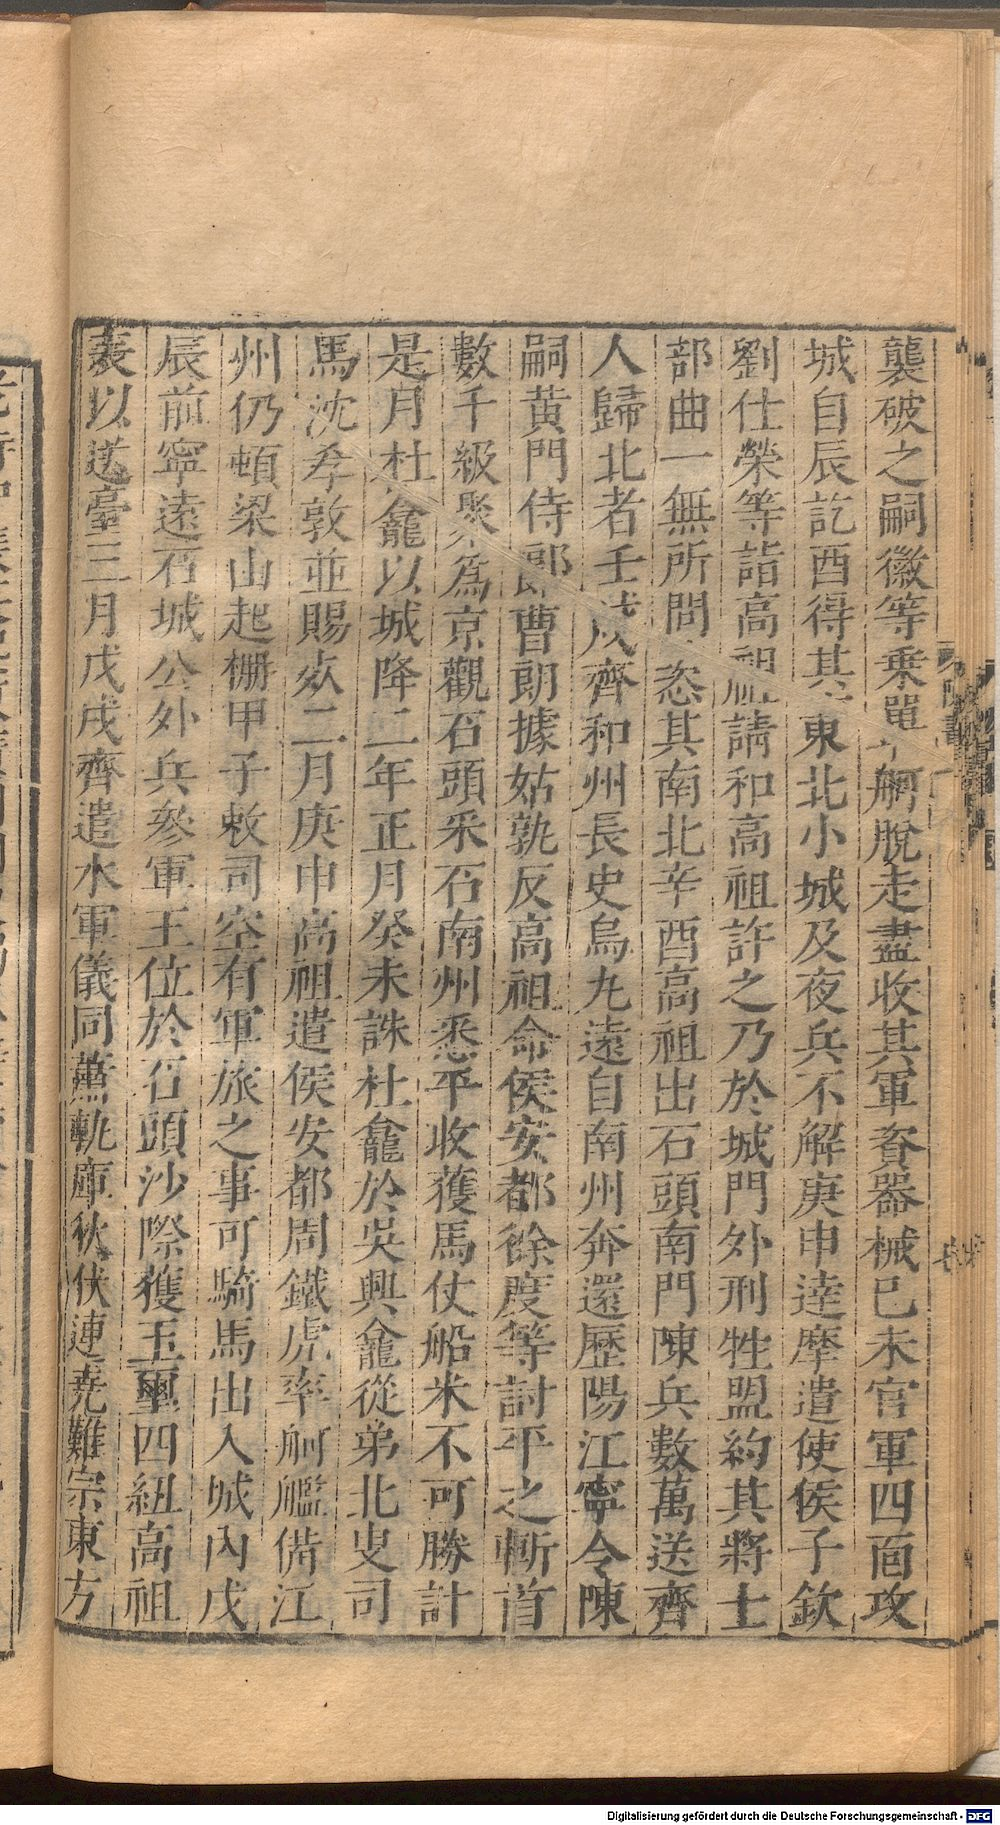 襲破之嗣徽等乗單舸脫走盡收其軍資器械巳未官軍四面攻
城自辰訖酉得其東北小城及夜兵不解庚申達摩遣使侯子欽
劉仕榮等詣高祖請和高祖許之乃於城門外刑牲盟約其將士
部曲一無所問恣其南北辛酉高祖出石頭南門陳兵數萬送齊
人歸北者壬戌齊和州長史烏九遠自南州奔還歷陽江寧令陳
嗣黃門侍郎曹朗據姑孰反高祖命侯安都徐度等討平之斬首
數千級聚爲京觀石頭采石南州悉平收獲馬仗船米不可勝計
是月杜龕以城降二年正月癸未誅杜龕於吳興龕從弟北叟司
馬沈孝敦並賜死二月庚申高祖遣侯安都周鐵虎率舸艦備江
州仍頓梁山起柵甲子敕司空有軍旅之事可騎馬出入城內戊
辰前寧遠石城公外兵參軍王位於石頭沙際獲玉璽四紐高祖
表以送臺三月戊戌齊遣水軍儀同蕭軌庫狄伏連堯難宗東方
Digitalisierung gefördert durch die Deutsche Forschungsgemeinschaft - DFG